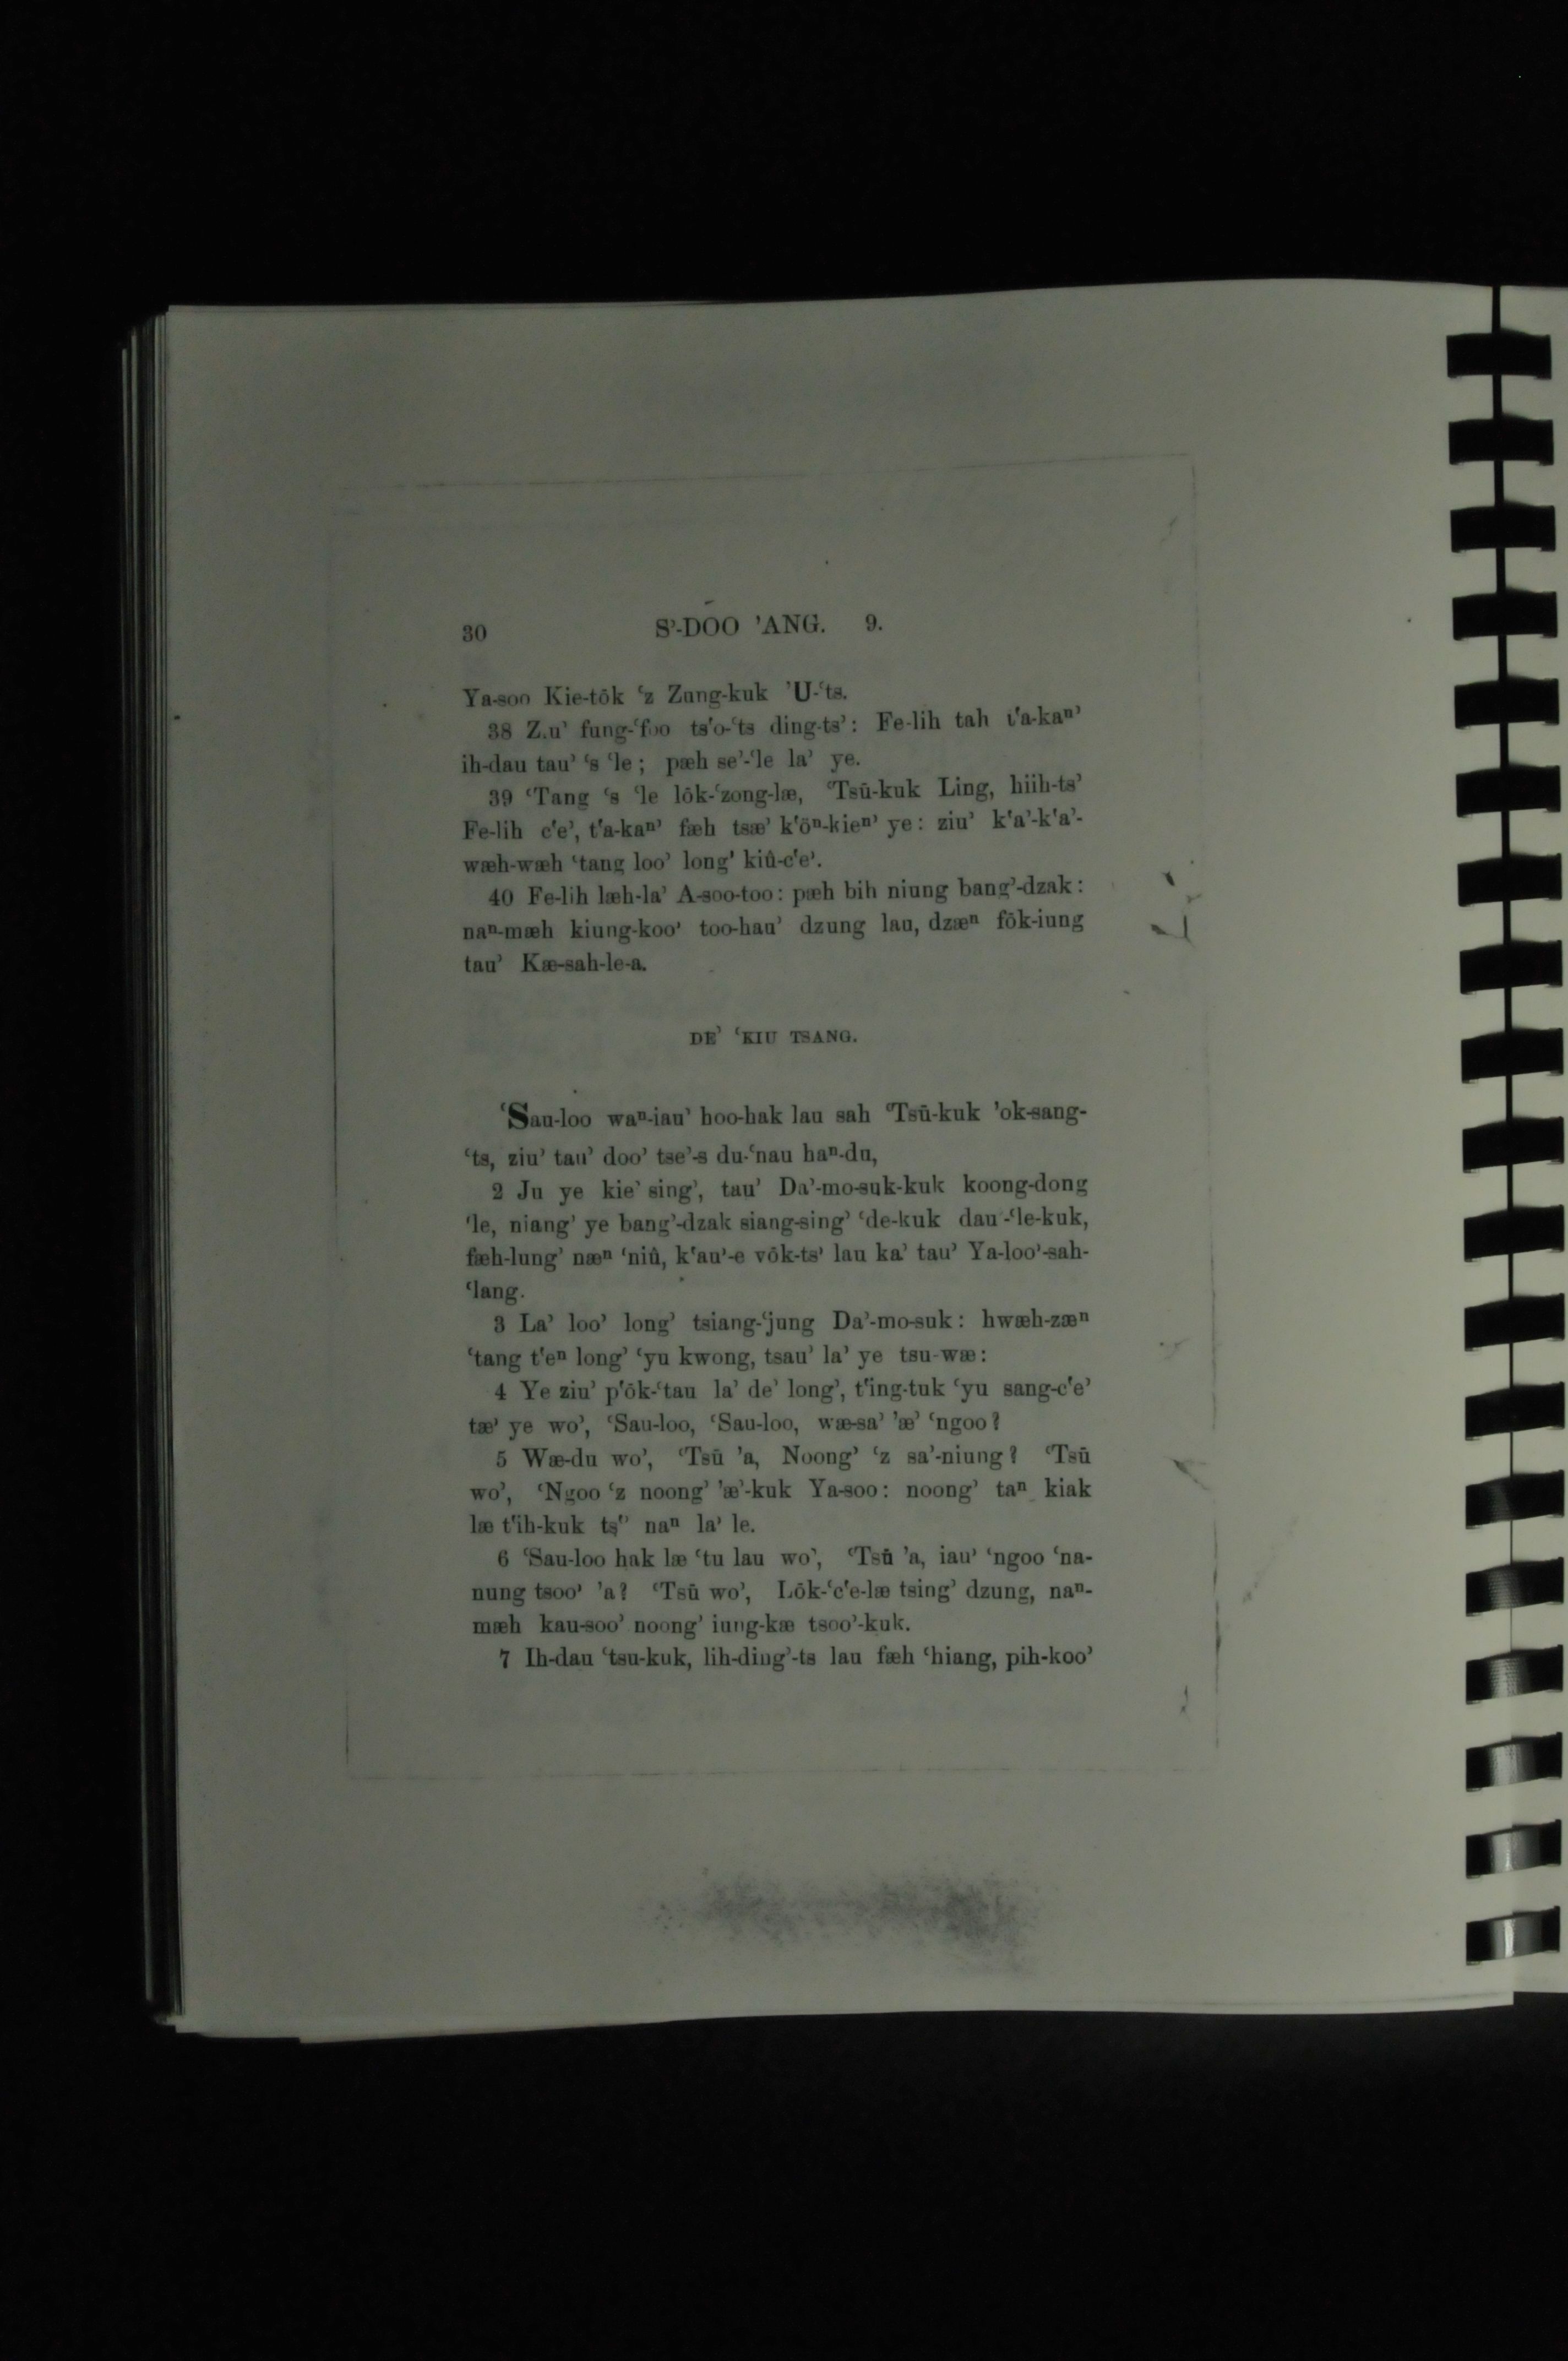 30 S’-DOO ’ANG. 9.
Ya-soo Kie-tōk ‘z Zung-kuk ’U-‘ts.
38 Ziu’ fung-‘foo ts‘o-‘ts ding-ts’: Fe-lih tah t‘a-kaⁿ’
ih-dau tau’ ‘s ‘le; pæh se’-‘le la’ ye.
39 ‘Tang ‘s ‘le lōk-‘zong-læ, ‘Tsū-kuk Ling, hiih-ts’
Fe-lih c‘e’, t‘a-kaⁿ’ fæh tsæ’ k‘öⁿ-kieⁿ’ ye: ziu’ k‘a’-k‘a’-
wæh-wæh ‘tang loo’ long’ kiû-c‘e’.
40 Fe-lih læh-la’ A-soo-too: pæh bih niung bang’-dzak:
naⁿ-mæh kiung-koo’ too-hau’ dzung lau, dzæⁿ fōk-iung
tau’ Kæ-sah-le-a.
DE’ ‘KIU TSANG.
‘Sau-loo waⁿ-iau’ hoo-hak lau sah ‘Tsū-kuk ’ok-sang-
‘ts, ziu’ tau’ doo’ tse’-s du-‘nau haⁿ-du,
2 Ju ye kie’ sing’, tau’ Da’-mo-suk-kuk koong-dong
‘le, niang’ ye bang’-dzak siang-sing’ ‘de-kuk dau-‘le-kuk,
fæh-lung’ næⁿ ‘niû, k‘au’-e vōk-ts’ lau ka’ tau’ Ya-loo’-sah-
‘lang.
3 La’ loo’ long’ tsiang-‘jung Da’-mo-suk: hwæh-zæⁿ
‘tang t‘eⁿ long’ ‘yu kwong, tsau’ la’ ye tsu-wæ:
4 Ye ziu’ p‘ōk-‘tau la’ de’ long’, t‘ing-tuk ‘yu sang-c‘e’
tæ’ ye wo’, ‘Sau-loo, ‘Sau-loo, wæ-sa’ ’æ’ ‘ngoo?
5 Wæ-du wo’, ‘Tsū ’a, Noong’ ‘z sa’-niung? ‘Tsū
wo’, ‘Ngoo ‘z noong’ ’æ’-kuk Ya-soo: noong’ taⁿ kiak
læ t‘ih-kuk ts‘’ naⁿ la’ le.
6 ‘Sau-loo hak læ ‘tu lau wo’, ‘Tsū ’a, iau’ ‘ngoo ‘na-
nung tsoo’ ’a? ‘Tsū wo’, Lōk-‘c‘e-læ tsing’ dzung, naⁿ-
mæh kau-soo’ noong’ iung-kæ tsoo’-kuk.
7 Ih-dau ‘tsu-kuk, lih-ding’-ts lau fæh ‘hiang, pih-koo’